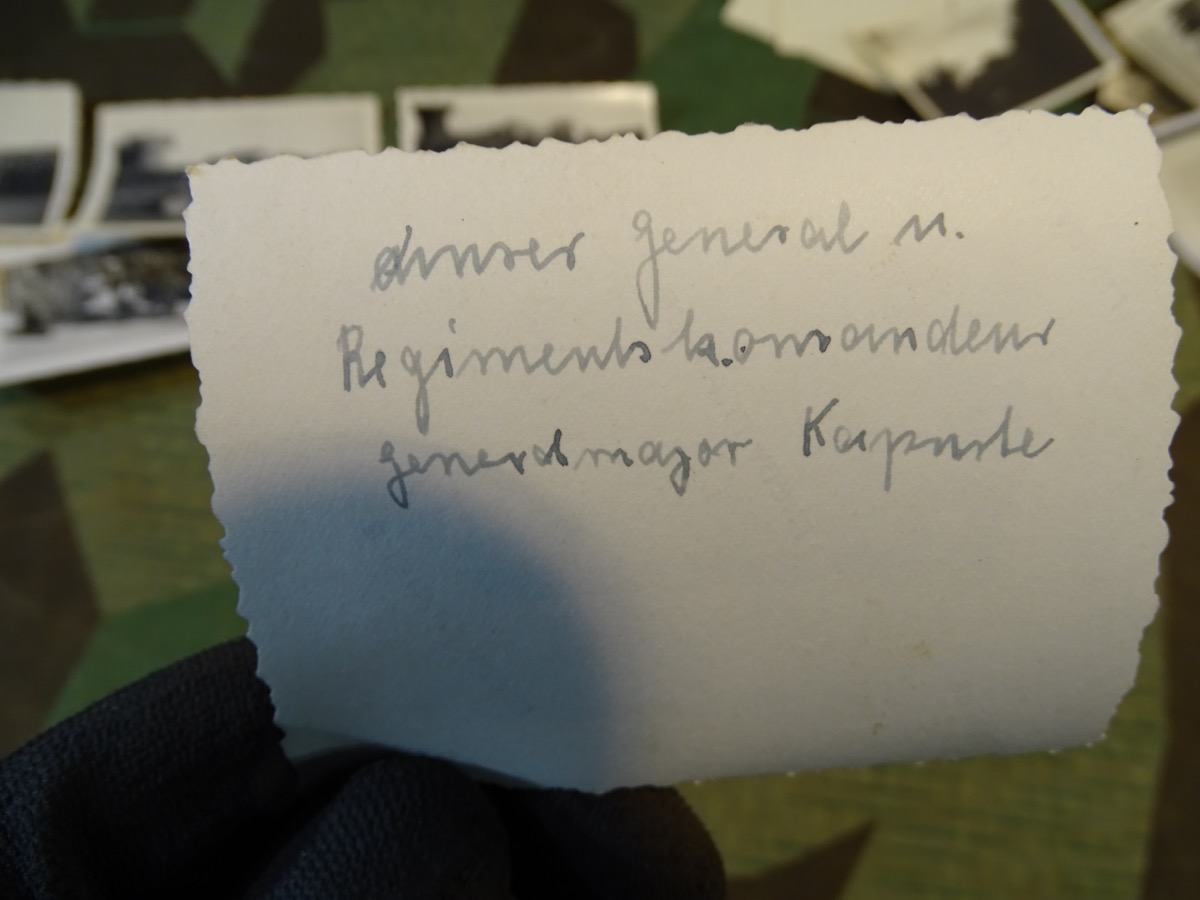 Unser General u.
Regimentskomandeur
generalmajor Kapuste